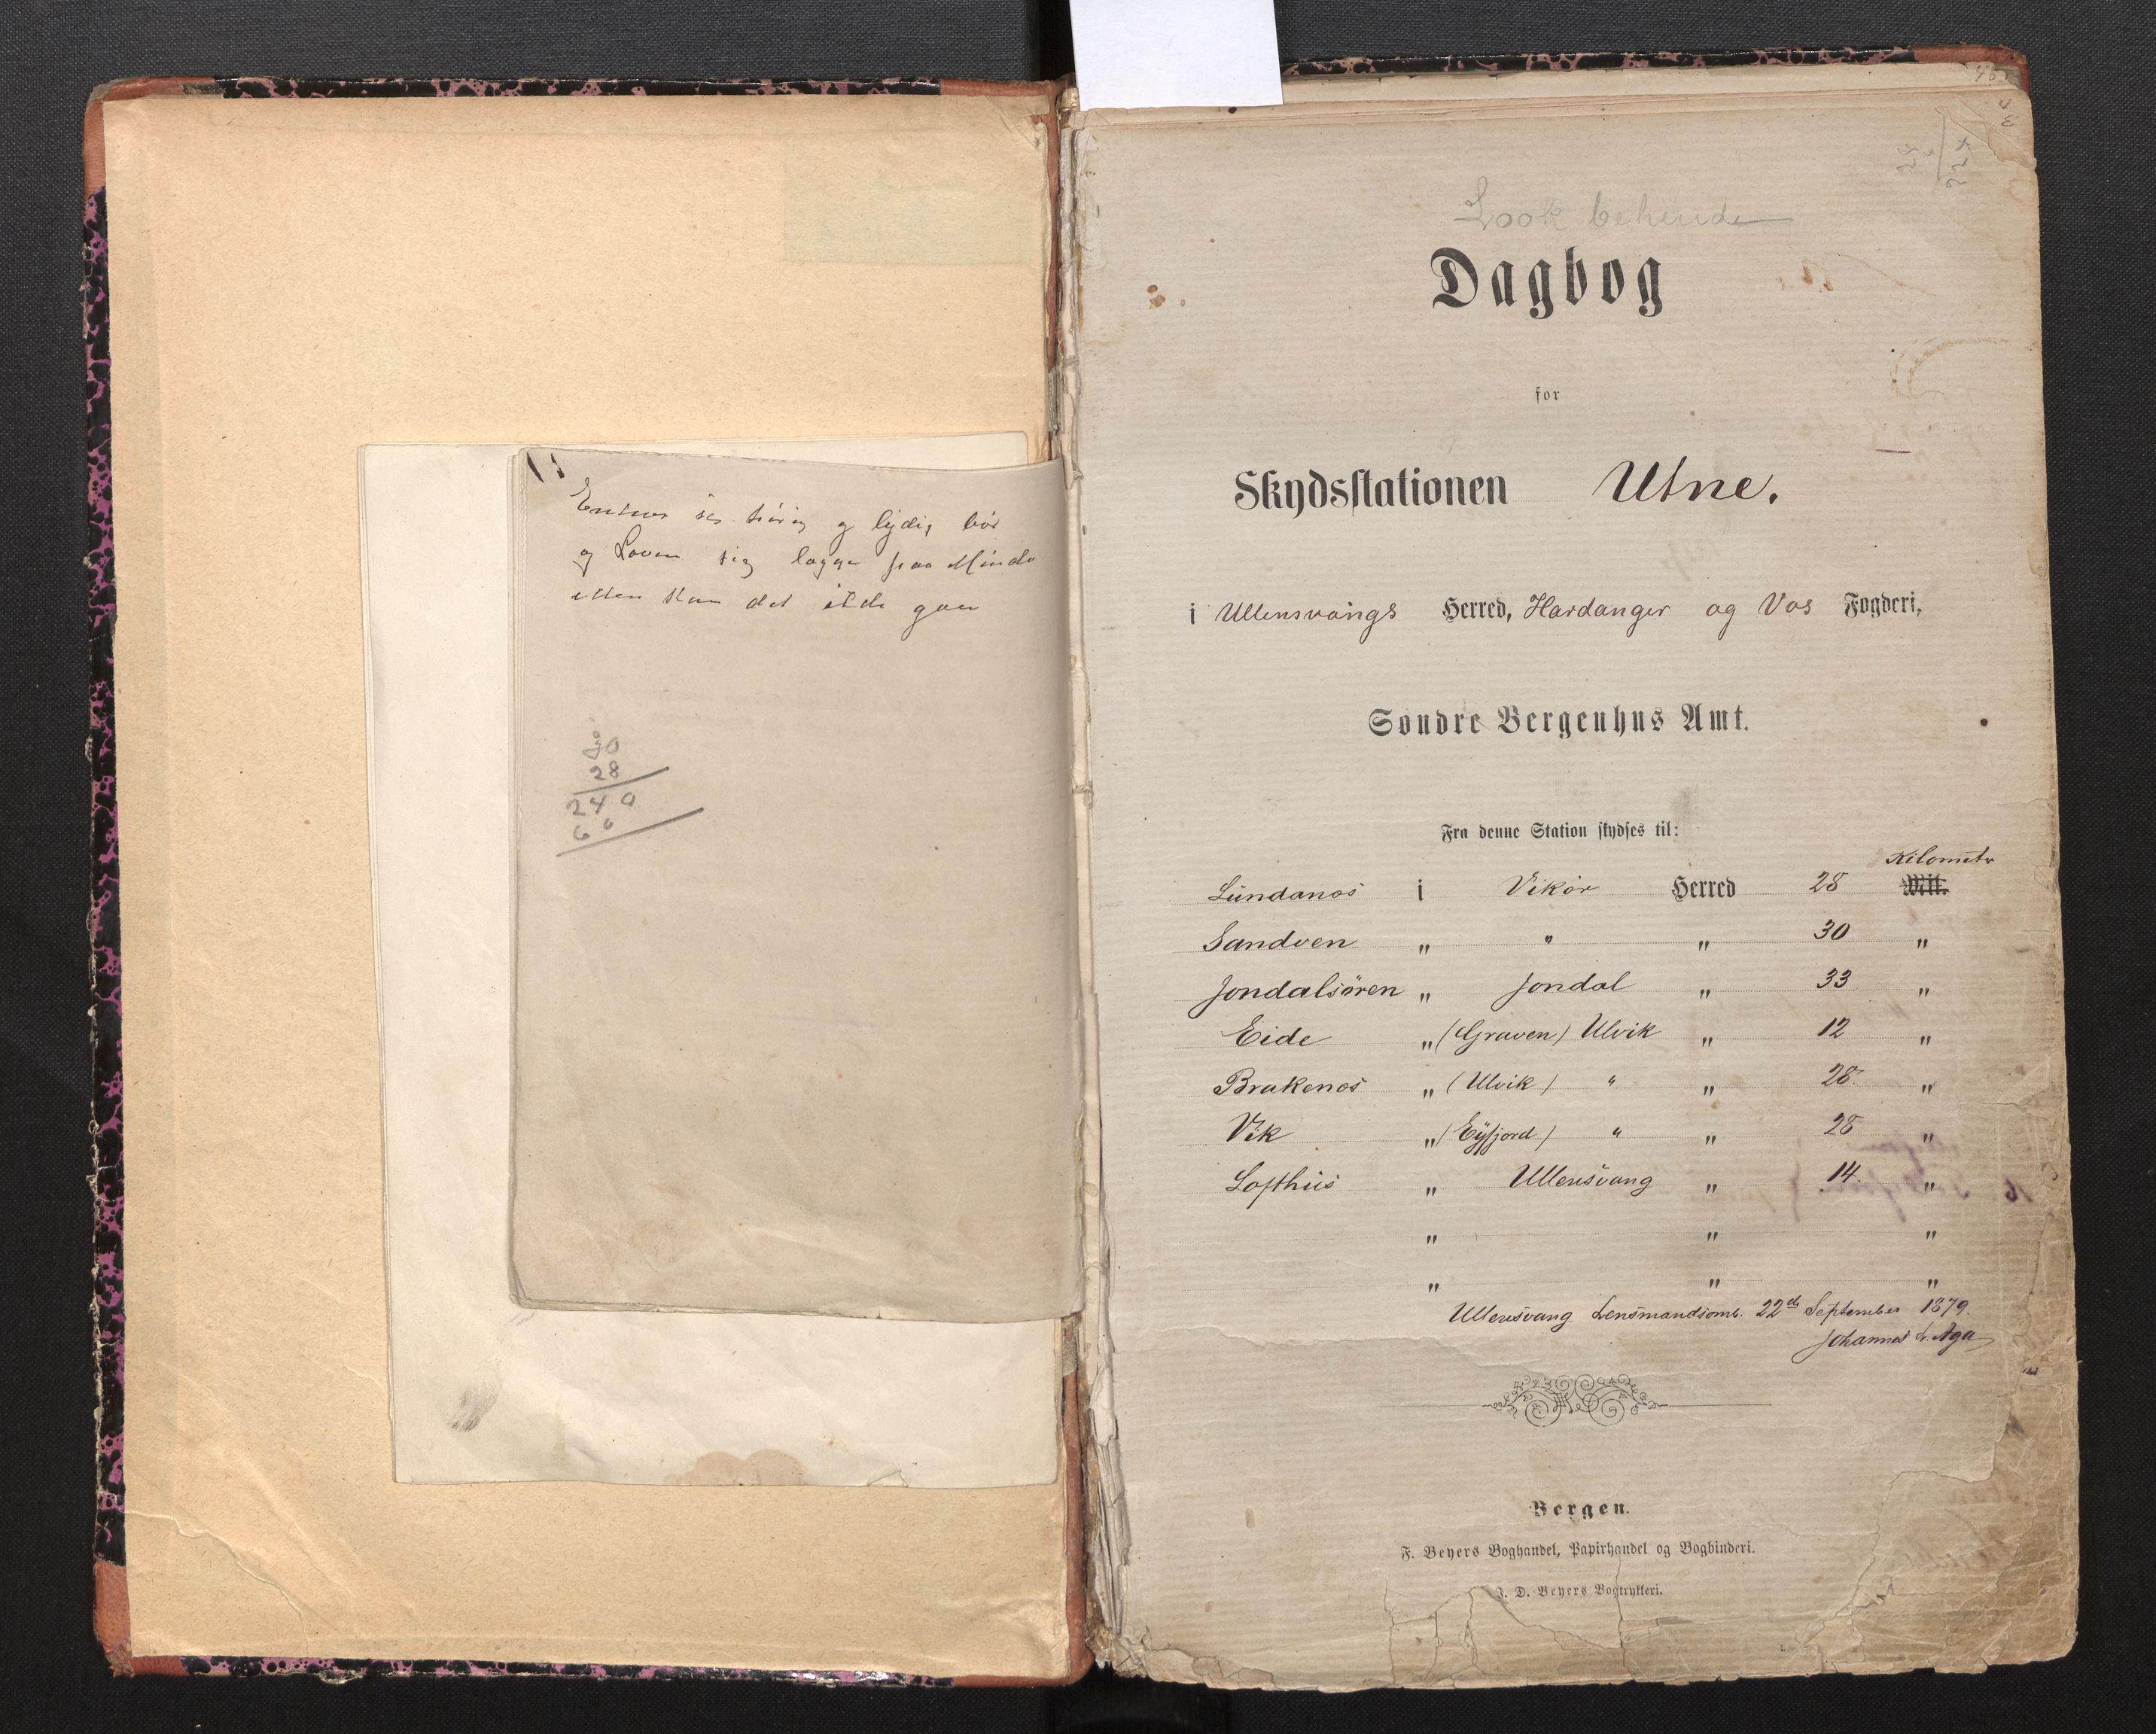 og Loven sig lægge paa Minde
ellers kan det ilde gaa
30
28
240
60
Look behende
Dagbog
for
Skydsstationen Utne.
i Ullensvangs Herred, Hardanger og Vos Fogderi,
Søndre Bergenhus Amt.
Fra denne Station skydses til:
Kilometer
Lundanæs i Vikør Herred 28 Mil.
Sandven " " " 30 "
Jondalsøren " Jondal " 33 "
Eide " (Graven) Ulvik " 12 "
Brakenæs " (Ulvik) " " 28 "
Vik " (Eyfjord) " " 28 "
Lofthus " Ullensvang " 14. "
" " "
" " "
Ullensvang Lensmandsomb. 22de September 1879.
Johannes L. Aga
Bergen.
F. Beyers Boghandel, Papirhandel og Bogbinderi.
J. D. Beyers Bogtrykkeri.